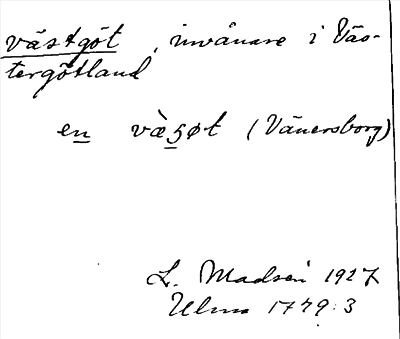 västgöt, invånare i Väs-
tergötland
en vàʒøt (Vänersborg)
L. Madsen 1927
Ulma 1779:3